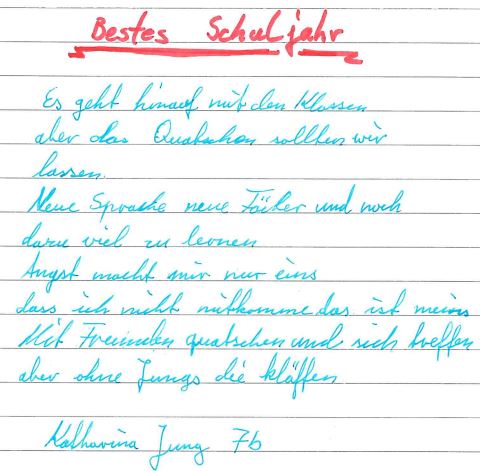 Bestes Schuljahr
Es geht hinauf mit den Klassen
aber das Quatschen sollten wir
lassen.
Neue Sprache neue Fächer und noch
dazu viel zu lernen
Angst macht mir nur eins
dass ich nicht mitkomme das ist meins
Mit Freunden quatschen und sich treffen
aber ohne Jungs die kläffen
Katharina Jung 7b